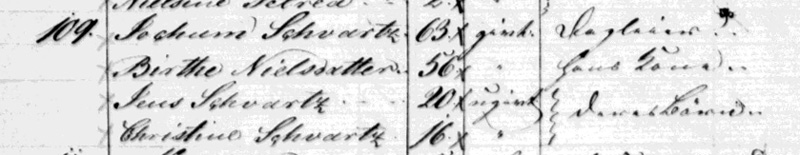 109. Jochum Schvartz. 63. givt. Dagleier
Birthe Nielsdatter. 56 " hans Kone
Jens Schvartz 20 ugivt } deres Børn
Christine Schvartz 16. "